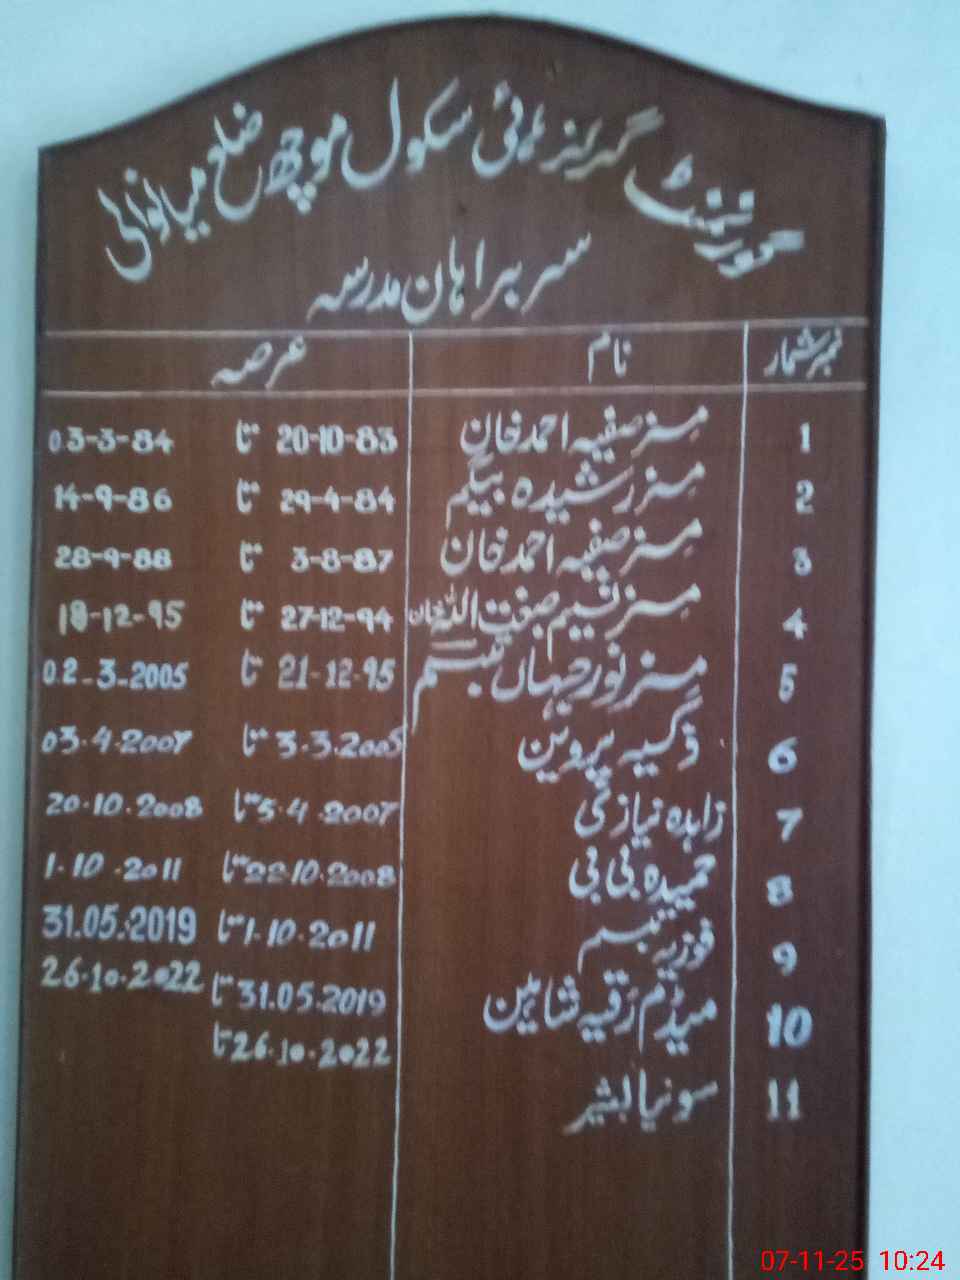 گورنمنٹ گرلز ہائی سکول موچھ ضلع میانوالی
سربراہان مدرسہ
نمبر شمار نام عرصہ
1 مسز صفیہ احمد خان 20-10-83 تا 03-3-84
2 مسز رشیدہ بیگم 29-4-84 تا 14-9-86
3 مسز صفیہ احمد خان 3-8-87 تا 28-9-88
4 مسز نسیم صبغت اللہ خان 27-12-94 تا 18-12-95
5 مسز نورجہاں تبسم 21-12-95 تا 02-3-2005
6 ذکیہ پروین 3.3.2005 تا 03.4.2007
7 زاہدہ نیازی 5.4.2007 تا 20.10.2008
8 حمیدہ بی بی 22.10.2008 تا 1.10.2011
9 فوزیہ تبسم 1.10.2011 تا 31.05.2019
10 میڈم رقیہ شاہین 31.05.2019 تا 26.10.2022
11 سونیا بشیر 26.10.2022 تا
07-11-25 10:24